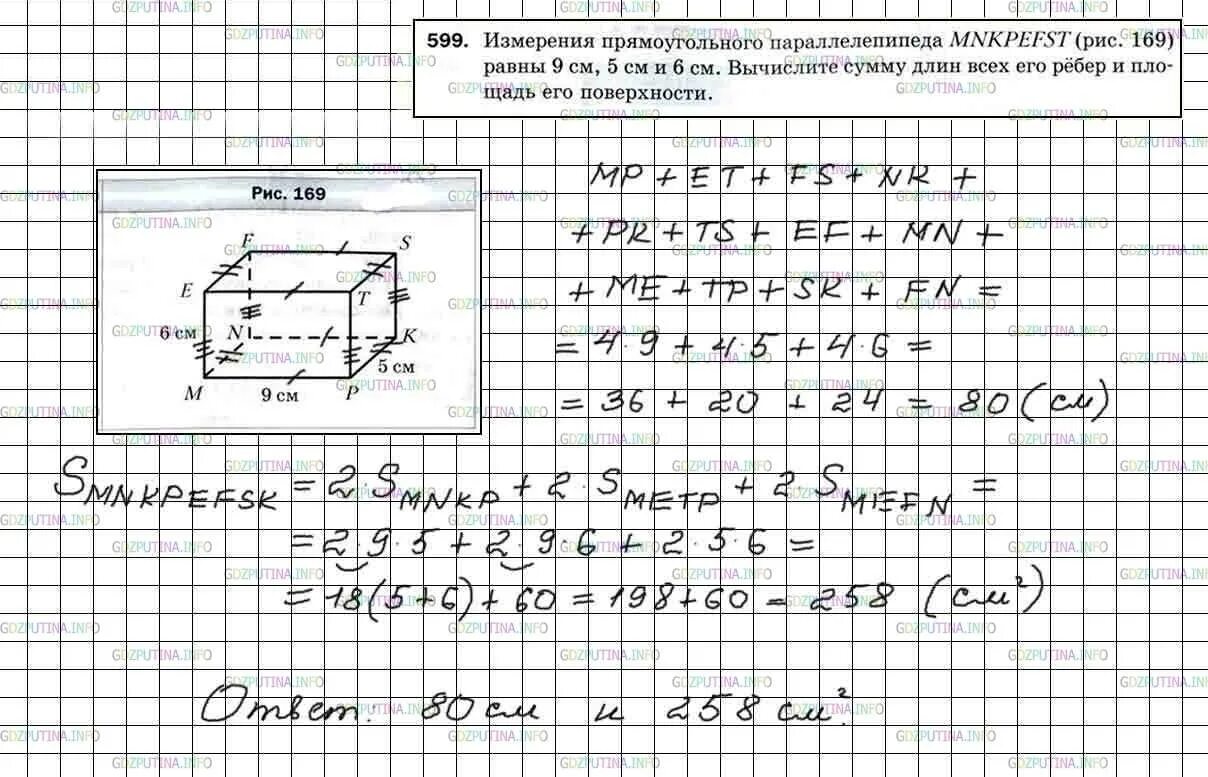 599. Измерения прямоугольного параллелепипеда MNKPEFST (рис. 169)
равны 9 см, 5 см и 6 см. Вычислите сумму длин всех его рёбер и пло-
щадь его поверхности.
Рис. 169
F S
E T
6 см N K
5 см
M 9 см P
MP + ET + FS + NK +
+ PK + TS + EF + MN +
+ ME + TP + SK + FN =
= 4·9 + 4·5 + 4·6 =
= 36 + 20 + 24 = 80 (см)
S MNKPEFSK = 2·S MNKP + 2·S METP + 2·S MEFN =
= 2·9·5 + 2·9·6 + 2·5·6 =
= 18(5+6) + 60 = 198+60 = 258 (см²)
Ответ: 80 см и 258 см².
GDZPUTINA.INFO